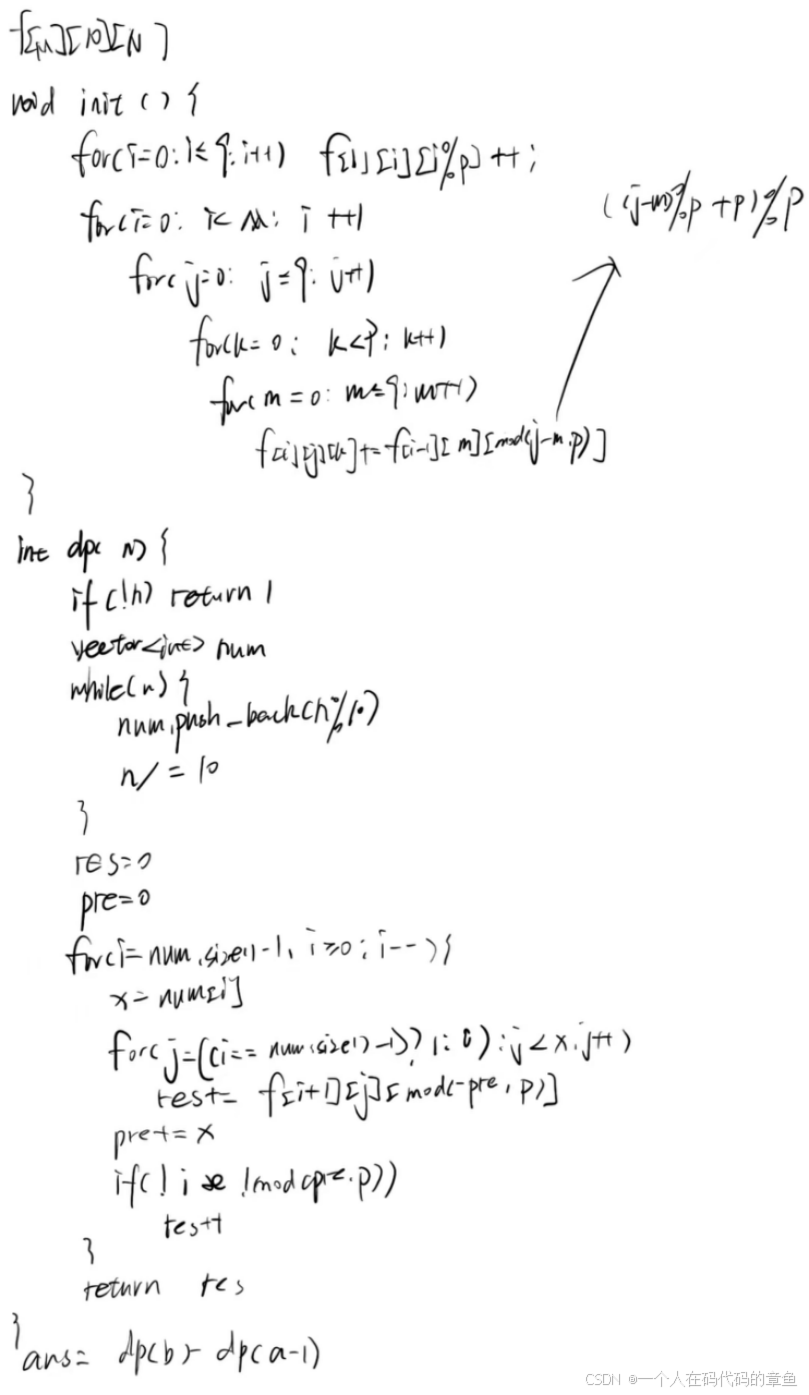 f[M][10][N]
void init () {
for(i=0: i≤9: i++) f[1][i][i%p]++;
for(i=0: i<M: i++)
for(j=0: j≤9: j++)
for(k=0: k<P: k++)
for(m=0: m≤9: m++)
f[i][j][k]+=f[i-1][m][mod(j-m,p)]
((j-m)%p+p)%p
}
int dp( n) {
if(!n) return 1
vector<int> num
while(n) {
num.push_back(n%10)
n/=10
}
res=0
pre=0
for(i=num.size()-1, i≥0; i--){
x=num[i]
for(j=((i==num.size()-1)?1:0):j<x.j++)
res+= f[i+1][j][mod(-pre, p)]
pre+=x
if(!i && !mod(pre.p))
res++
}
return res
}
ans= dp(b)-dp(a-1)
CSDN @一个人在码代码的章鱼